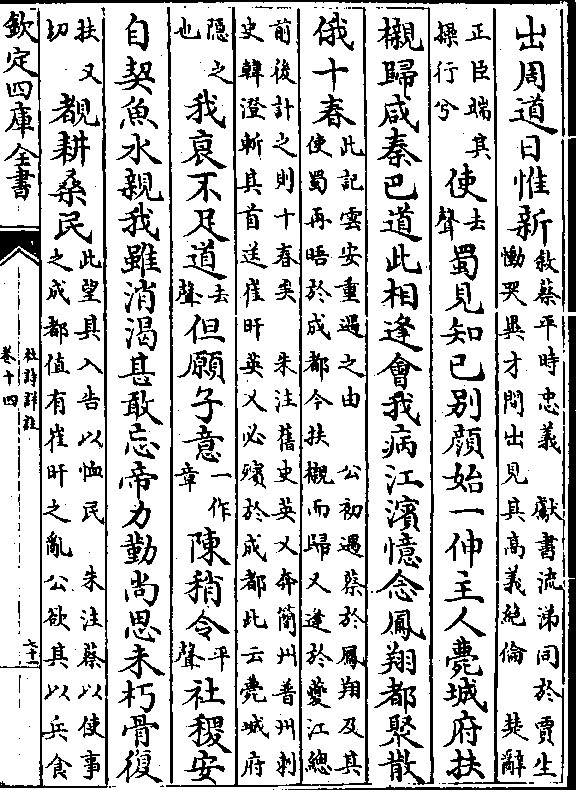 出周道日惟新敘蔡平時忠義 獻書流涕同於賈生慟哭異才間出見其高義絶倫 楚辭
正臣端其操行兮使去聲蜀見知己别顔始一伸主人薨城府扶
櫬歸咸秦巴道此相逢會我病江濱憶念鳳翔都聚散
俄十春此記雲安重遇之由 公初遇蔡於鳳翔及其使蜀再晤於成都今扶櫬而歸又逢於夔江總
前後計之則十春矣 朱注舊史英乂奔簡州普州刺史韓澄斬其首送崔旰英乂必殯於成都此云薨城府
隱之也我哀不足道去聲但願子意一作章陳稍令平聲社稷安
自契魚水親我雖消渴甚敢忘帝力勤尚思未朽骨復
扶又切覩耕桑民此望其入告以恤民 朱注蔡以使事之成都值有崔旰之亂公欲其以兵食
欽定四庫全書
杜詩詳註
卷十四
六十二